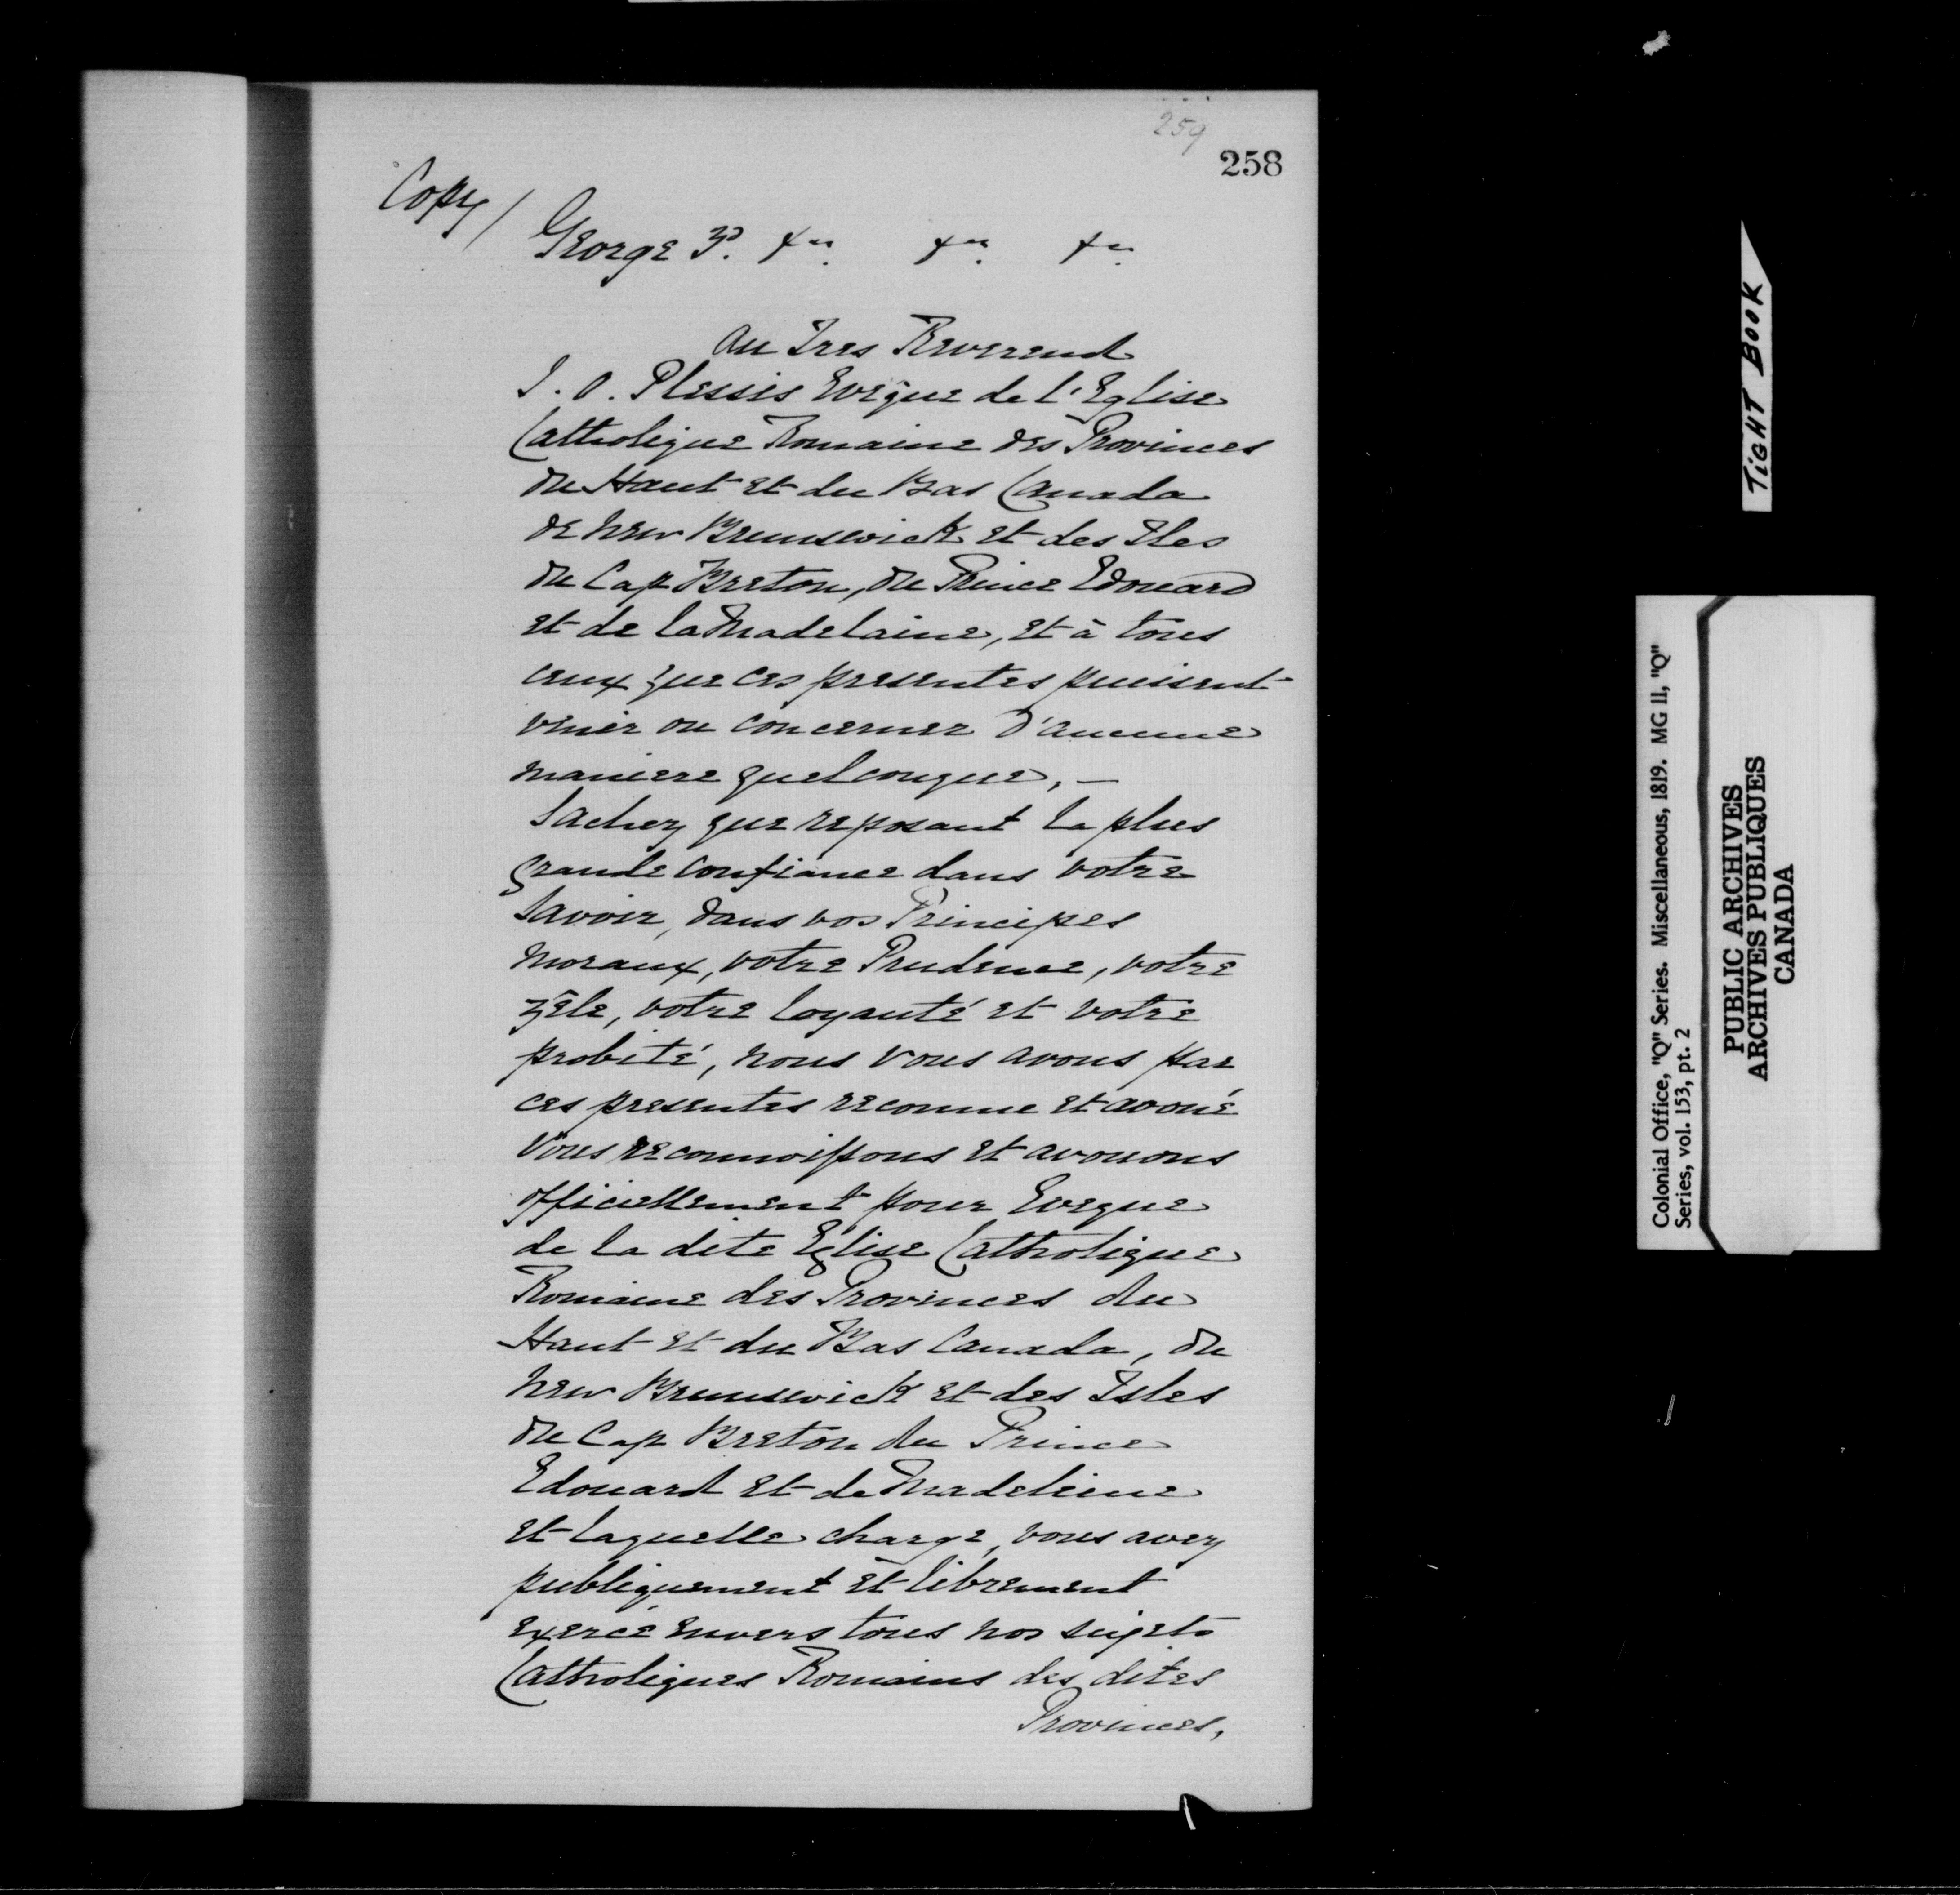 259
258
Copy/
George 3d. &ca. &ca. &ca.
Au Tres Reverend
J. O. Plessis Evêque de l'Eglise
Catholique Romaine des Provinces
du Haut et du Bas Canada
de New Brunswick et des Iles
du Cap Breton, du Prince Edouard
et de la Madelaine, et à tous
ceux que ces presentes puissent
venir ou concerner d'aucune
maniere quelconque, —
Sachez que reposant la plus
grande confiance dans votre
Savoir, dans vos Principes
Moraux, votre Prudence, votre
zêle, votre loyauté et votre
probité, nous vous avons par
ces presentes reconnu et avoué
Vous reconnoissons et avouons
officiellement pour Eveque
de la dite Eglise Catholique
Romaine des Provinces du
Haut et du Bas Canada, du
New Brunswick et des Isles
du Cap Breton du Prince
Edouard et de Madeleine
et laquelle charge, vous avez
publiquement et librement
exercé envers tous nos sujets
Catholiques Romains des dites
Provinces,
TIGHT BOOK
Colonial Office, "Q" Series. Miscellaneous, 1819. MG 11, "Q"
Series, vol. 153, pt. 2
PUBLIC ARCHIVES
ARCHIVES PUBLIQUES
CANADA